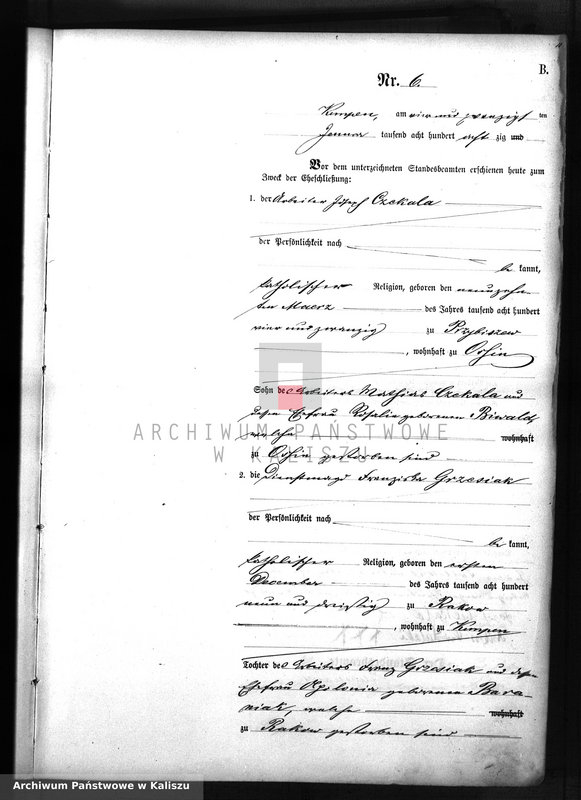 B.
Nr. 6.
Kempen, am vier und zwanzigsten
Januar tausend acht hundert acht zig und
Vor dem unterzeichneten Standesbeamten erschienen heute zum
Zweck der Eheschließung:
1. der Arbeiter Joseph Czekala
der Persönlichkeit nach
be kannt,
katholischer Religion, geboren den neunzehn-
ten Maerz des Jahres tausend acht hundert
vier und zwanzig zu Przybiszew
, wohnhaft zu Oshin
Sohn des Arbeiters Mathias Czekala und
dessen Ehefrau Rosalie geborenen Biwald,
welche wohnhaft
zu Oshin gestorben sind
ARCHIWUM PAŃSTWOWE
W KALISZU
2. die Dienstmagd Franziska Grzesiak
der Persönlichkeit nach
be kannt,
katholischer Religion, geboren den ersten
December des Jahres tausend acht hundert
neun und dreißig zu Rakow
, wohnhaft zu Kempen
Tochter des Arbeiters Franz Grzesiak und dessen
Ehefrau Apolonia geborenen Bara-
niak, welche wohnhaft
zu Rakow gestorben sind
Archiwum Państwowe w Kaliszu